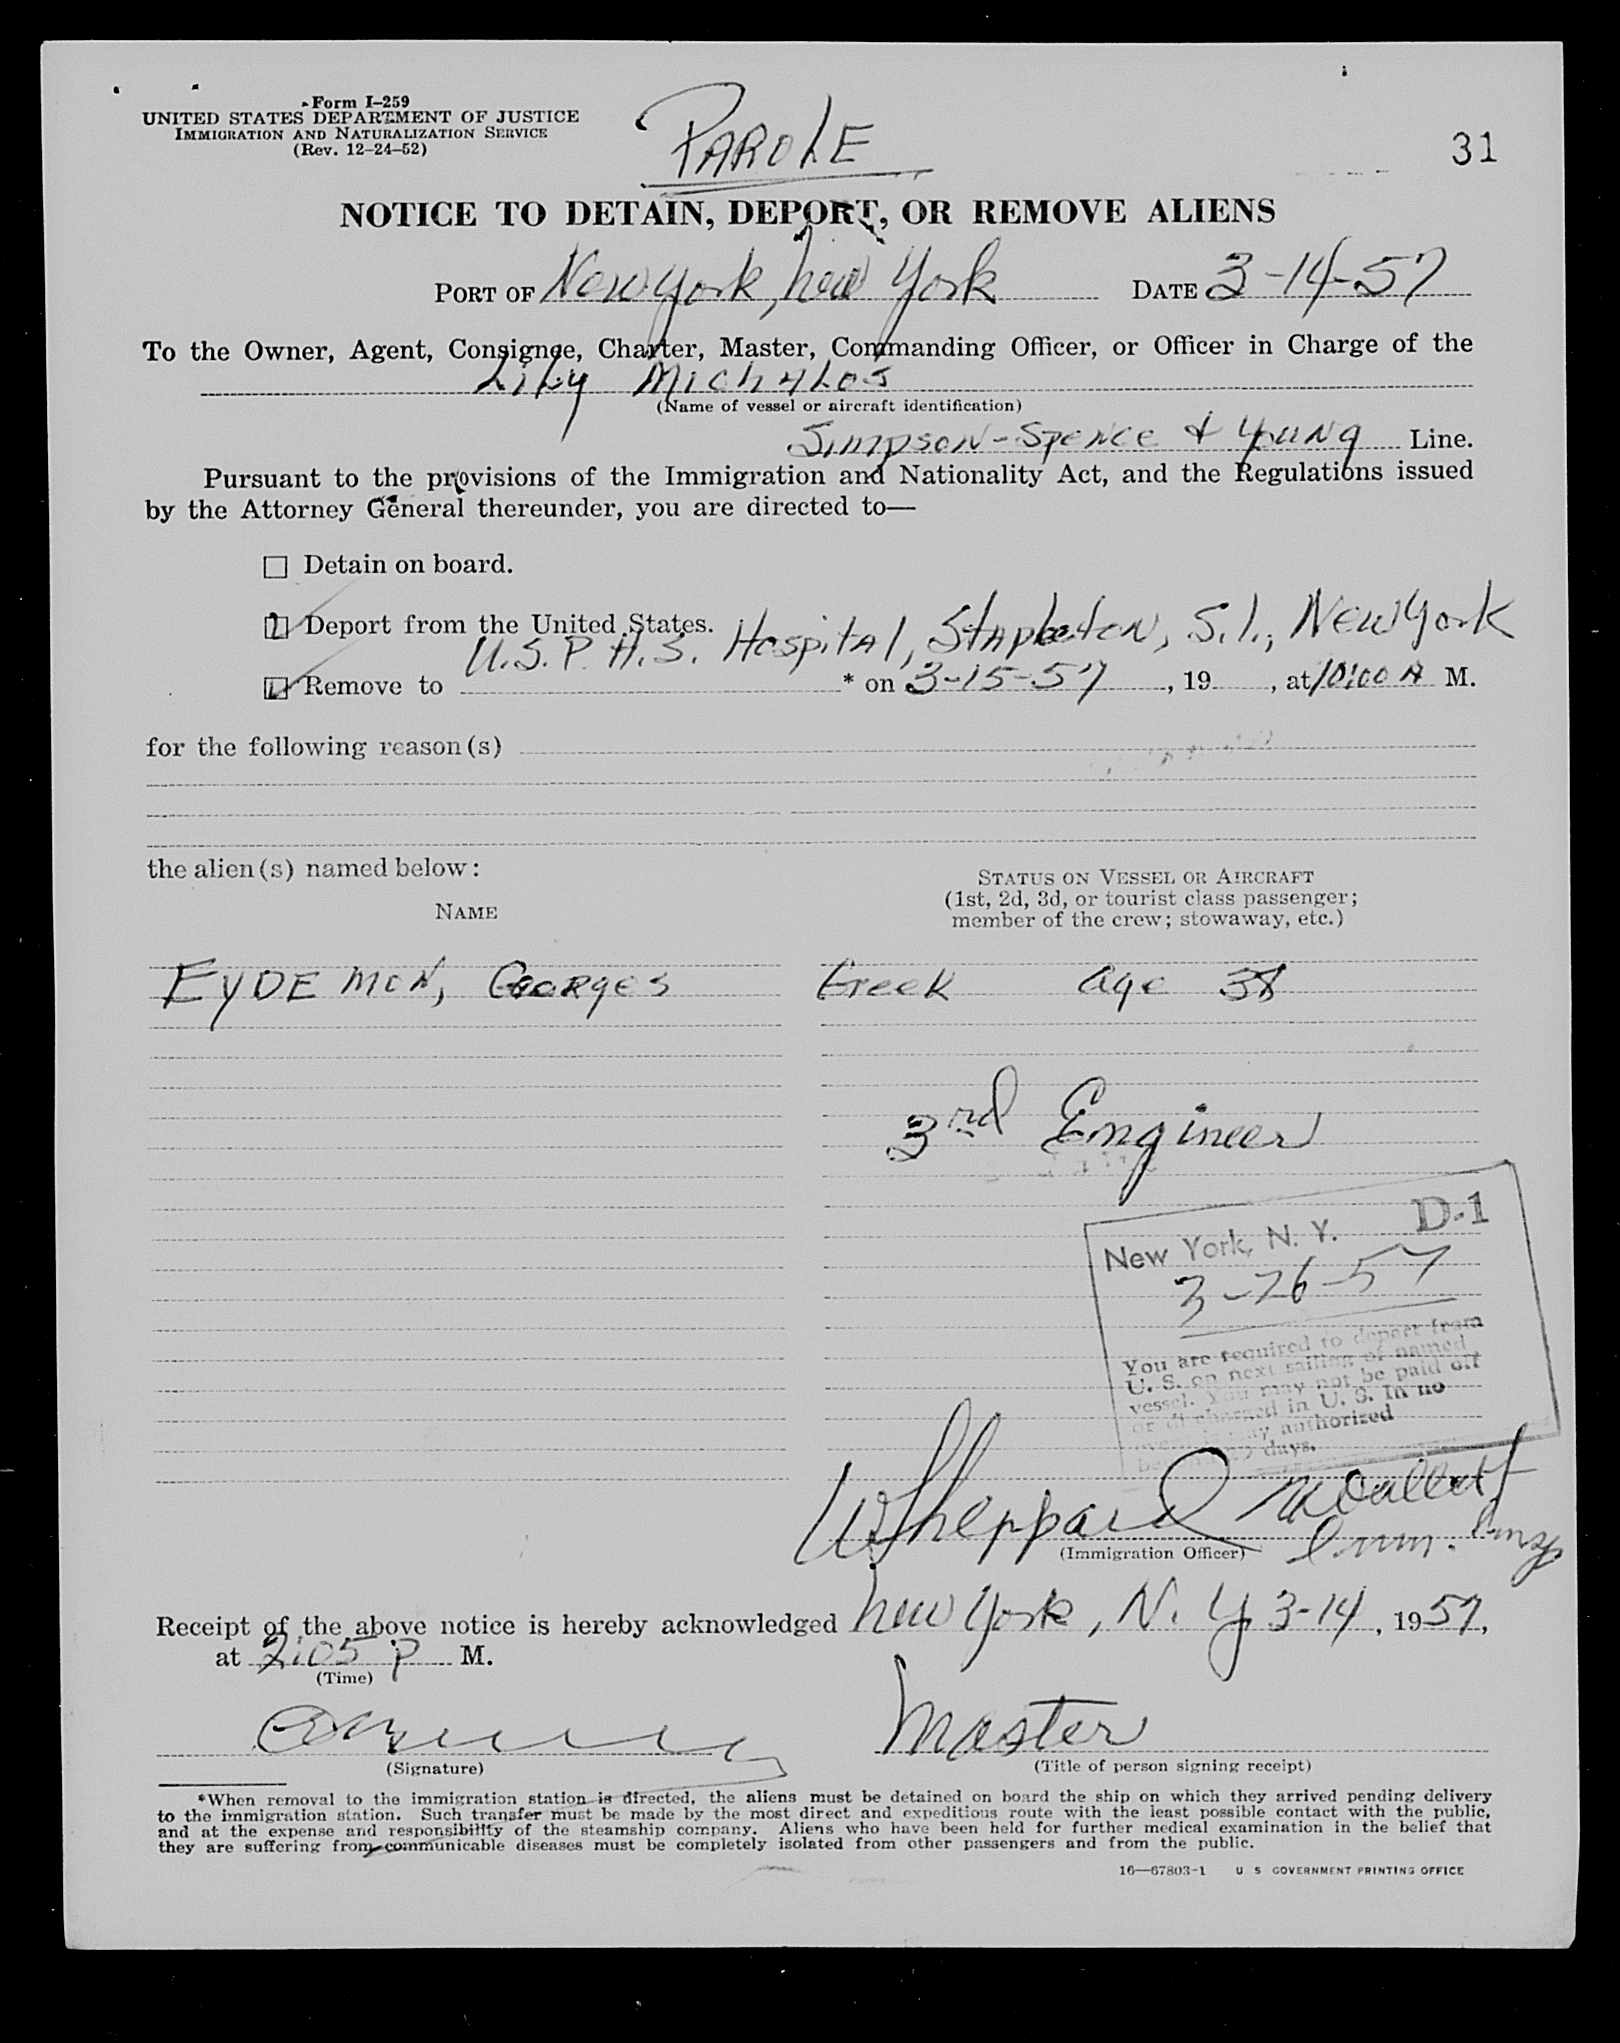 Form I-259
UNITED STATES DEPARTMENT OF JUSTICE
IMMIGRATION AND NATURALIZATION SERVICE
(Rev. 12-24-52)
PAROLE
31
NOTICE TO DETAIN, DEPORT, OR REMOVE ALIENS
PORT OF New York, New York DATE 3-14-57
To the Owner, Agent, Consignee, Charter, Master, Commanding Officer, or Officer in Charge of the
Lily Michalos
(Name of vessel or aircraft identification)
Simpson-Spence & Young Line.
Pursuant to the provisions of the Immigration and Nationality Act, and the Regulations issued
by the Attorney General thereunder, you are directed to—
Detain on board.
Deport from the United States.
U.S.P.H.S. Hospital, Stapleton, S.I., New York
Remove to * on 3-15-57, 19 , at 10:00 A M.
for the following reason(s)
the alien(s) named below:
STATUS ON VESSEL OR AIRCRAFT
(1st, 2d, 3d, or tourist class passenger;
member of the crew; stowaway, etc.)
NAME
EYDEMON, Georges Greek age 38
3rd Engineer
New York, N. Y. D-1
3-26-57
You are required to depart from
U. S. on next sailing of named
vessel. You may not be paid off
or discharged in U. S. In no
authorized
days.
W Sheppard
(Immigration Officer) Imm. Insp
Receipt of the above notice is hereby acknowledged New York, N. Y. 3-14, 1957,
at 2:05 P M.
(Time)
Master
(Signature) (Title of person signing receipt)
*When removal to the immigration station is directed, the aliens must be detained on board the ship on which they arrived pending delivery
to the immigration station. Such transfer must be made by the most direct and expeditious route with the least possible contact with the public,
and at the expense and responsibility of the steamship company. Aliens who have been held for further medical examination in the belief that
they are suffering from communicable diseases must be completely isolated from other passengers and from the public.
16—67803-1 U S GOVERNMENT PRINTING OFFICE